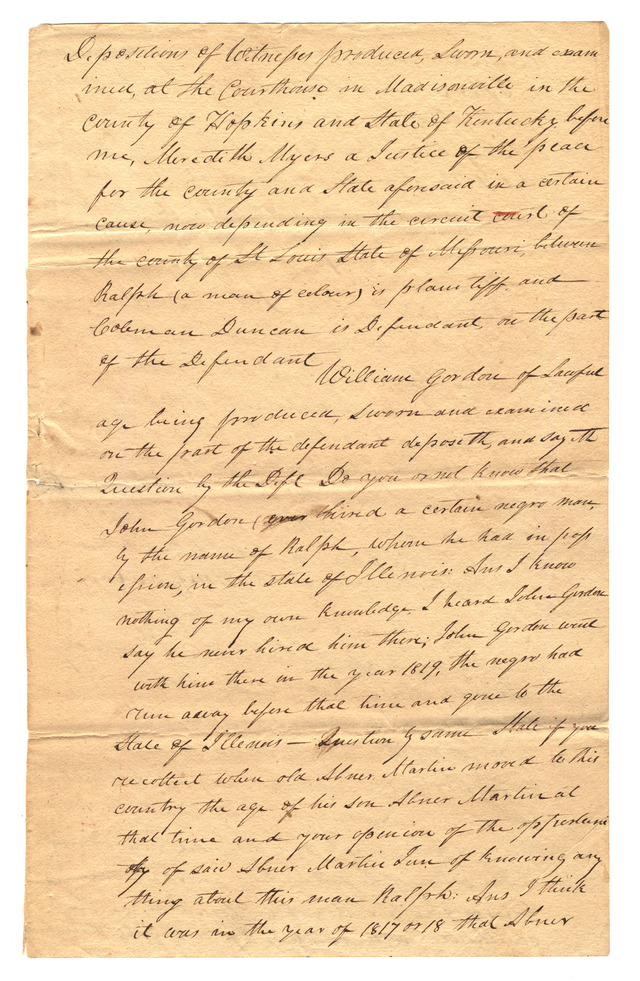 Depositions of Witnesses produced, Sworn, and exam
ined, at the Courthouse in Madisonville in the
County of Hopkins and State of Kentucky before
me, Meredith Myers a Justice of the peace
for the county and State aforesaid in a certain
cause, now depending in the circuit court of
the county of St Louis State of Missouri, between
Ralph (a man of colour) is plaintiff and
Coleman Duncan is Defendant, on the part
of the Defendant
William Gordon of Lawful
age being produced, Sworn and examined
on the part of the defendant deposeth, and sayith
Question by the Deft Do you or not know that
John Gordon (ever hired a certain negro man,
by the name of Ralph, whom he had in poss
ession, in the state of Illenois: Ans I know
nothing of my own knowledge, I heard John Gordon
say he never hired him there; John Gordon went
with him there in the year 1819, the negro had
run away before that time and gone to the
State of Illenois — Question by same State if you
recollect when old Abner Martin moved to this
country the age of his son Abner Martin at
that time and your opinion of the oppertuni
ty of said Abner Martin Jun of knowing any
thing about this man Ralph: Ans I think
it was in the year of 1817 or 18 that Abner